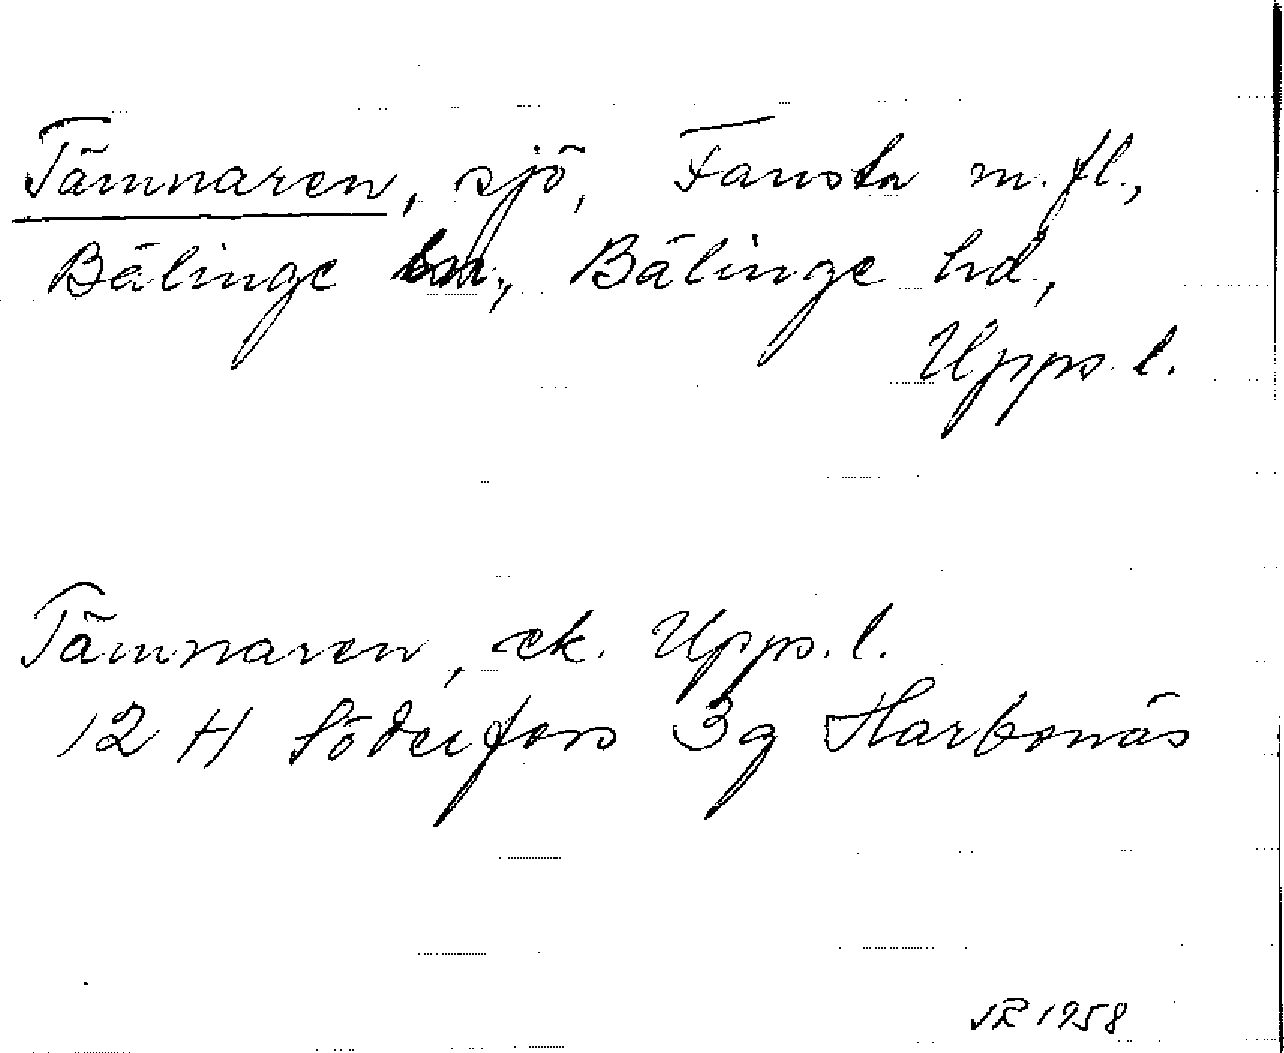 Tämnaren, sjö, Fansta m.fl.,
Bälinge sn., Bälinge hd,
Upps. l.
Tämnaren, ek. Upps. l.
12 H Söderfors 3g Harbonäs
1958